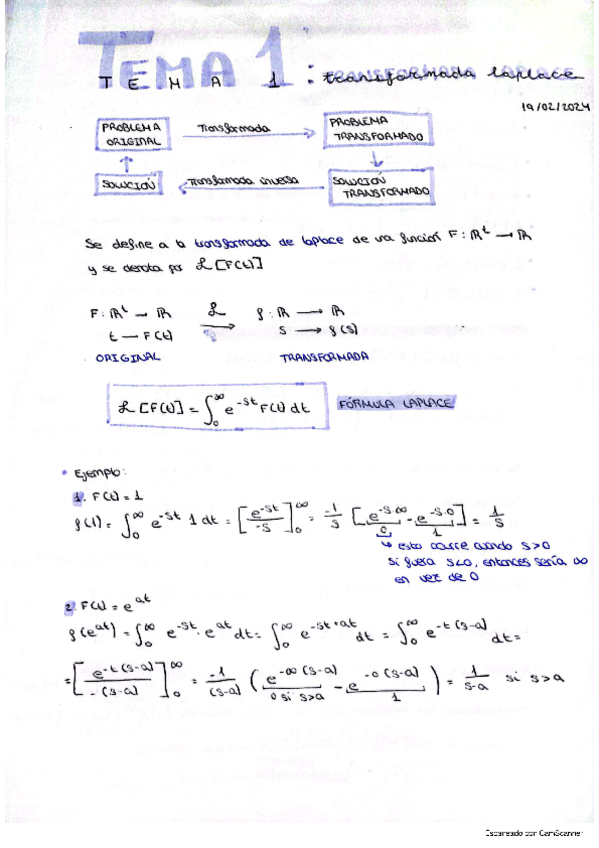 TEMA 1: transformada laplace
19/02/2024
PROBLEMA ORIGINAL Transformada PROBLEMA TRANSFORMADO
SOLUCIÓN Transformada inversa SOLUCIÓN TRANSFORMADO
Se define a la transformada de laplace de una función F: ℝ^t → ℝ
y se denota por ℒ[F(t)]
F: ℝ^t → ℝ ℒ f: ℝ → ℝ
t — F(t) → s → f(s)
ORIGINAL TRANSFORMADA
ℒ[F(t)] = ∫₀^∞ e^{-st} F(t) dt FÓRMULA LAPLACE
• Ejemplo:
1. F(t) = 1
f(1) = ∫₀^∞ e^{-st} 1 dt = [e^{-st}/-s]₀^∞ = -1/s [e^{-s·∞} - e^{-s·0}] = 1/s
0 1
↳ esto ocurre cuando s>0
si fuera s<0, entonces sería ∞
en vez de 0
2. F(t) = e^{at}
f(e^{at}) = ∫₀^∞ e^{-st} · e^{at} dt = ∫₀^∞ e^{-st+at} dt = ∫₀^∞ e^{-t(s-a)} dt =
= [e^{-t(s-a)}/-(s-a)]₀^∞ = -1/(s-a) (e^{-∞(s-a)} - e^{-0(s-a)}) = 1/s-a si s>a
0 si s>a 1
Escaneado con CamScanner